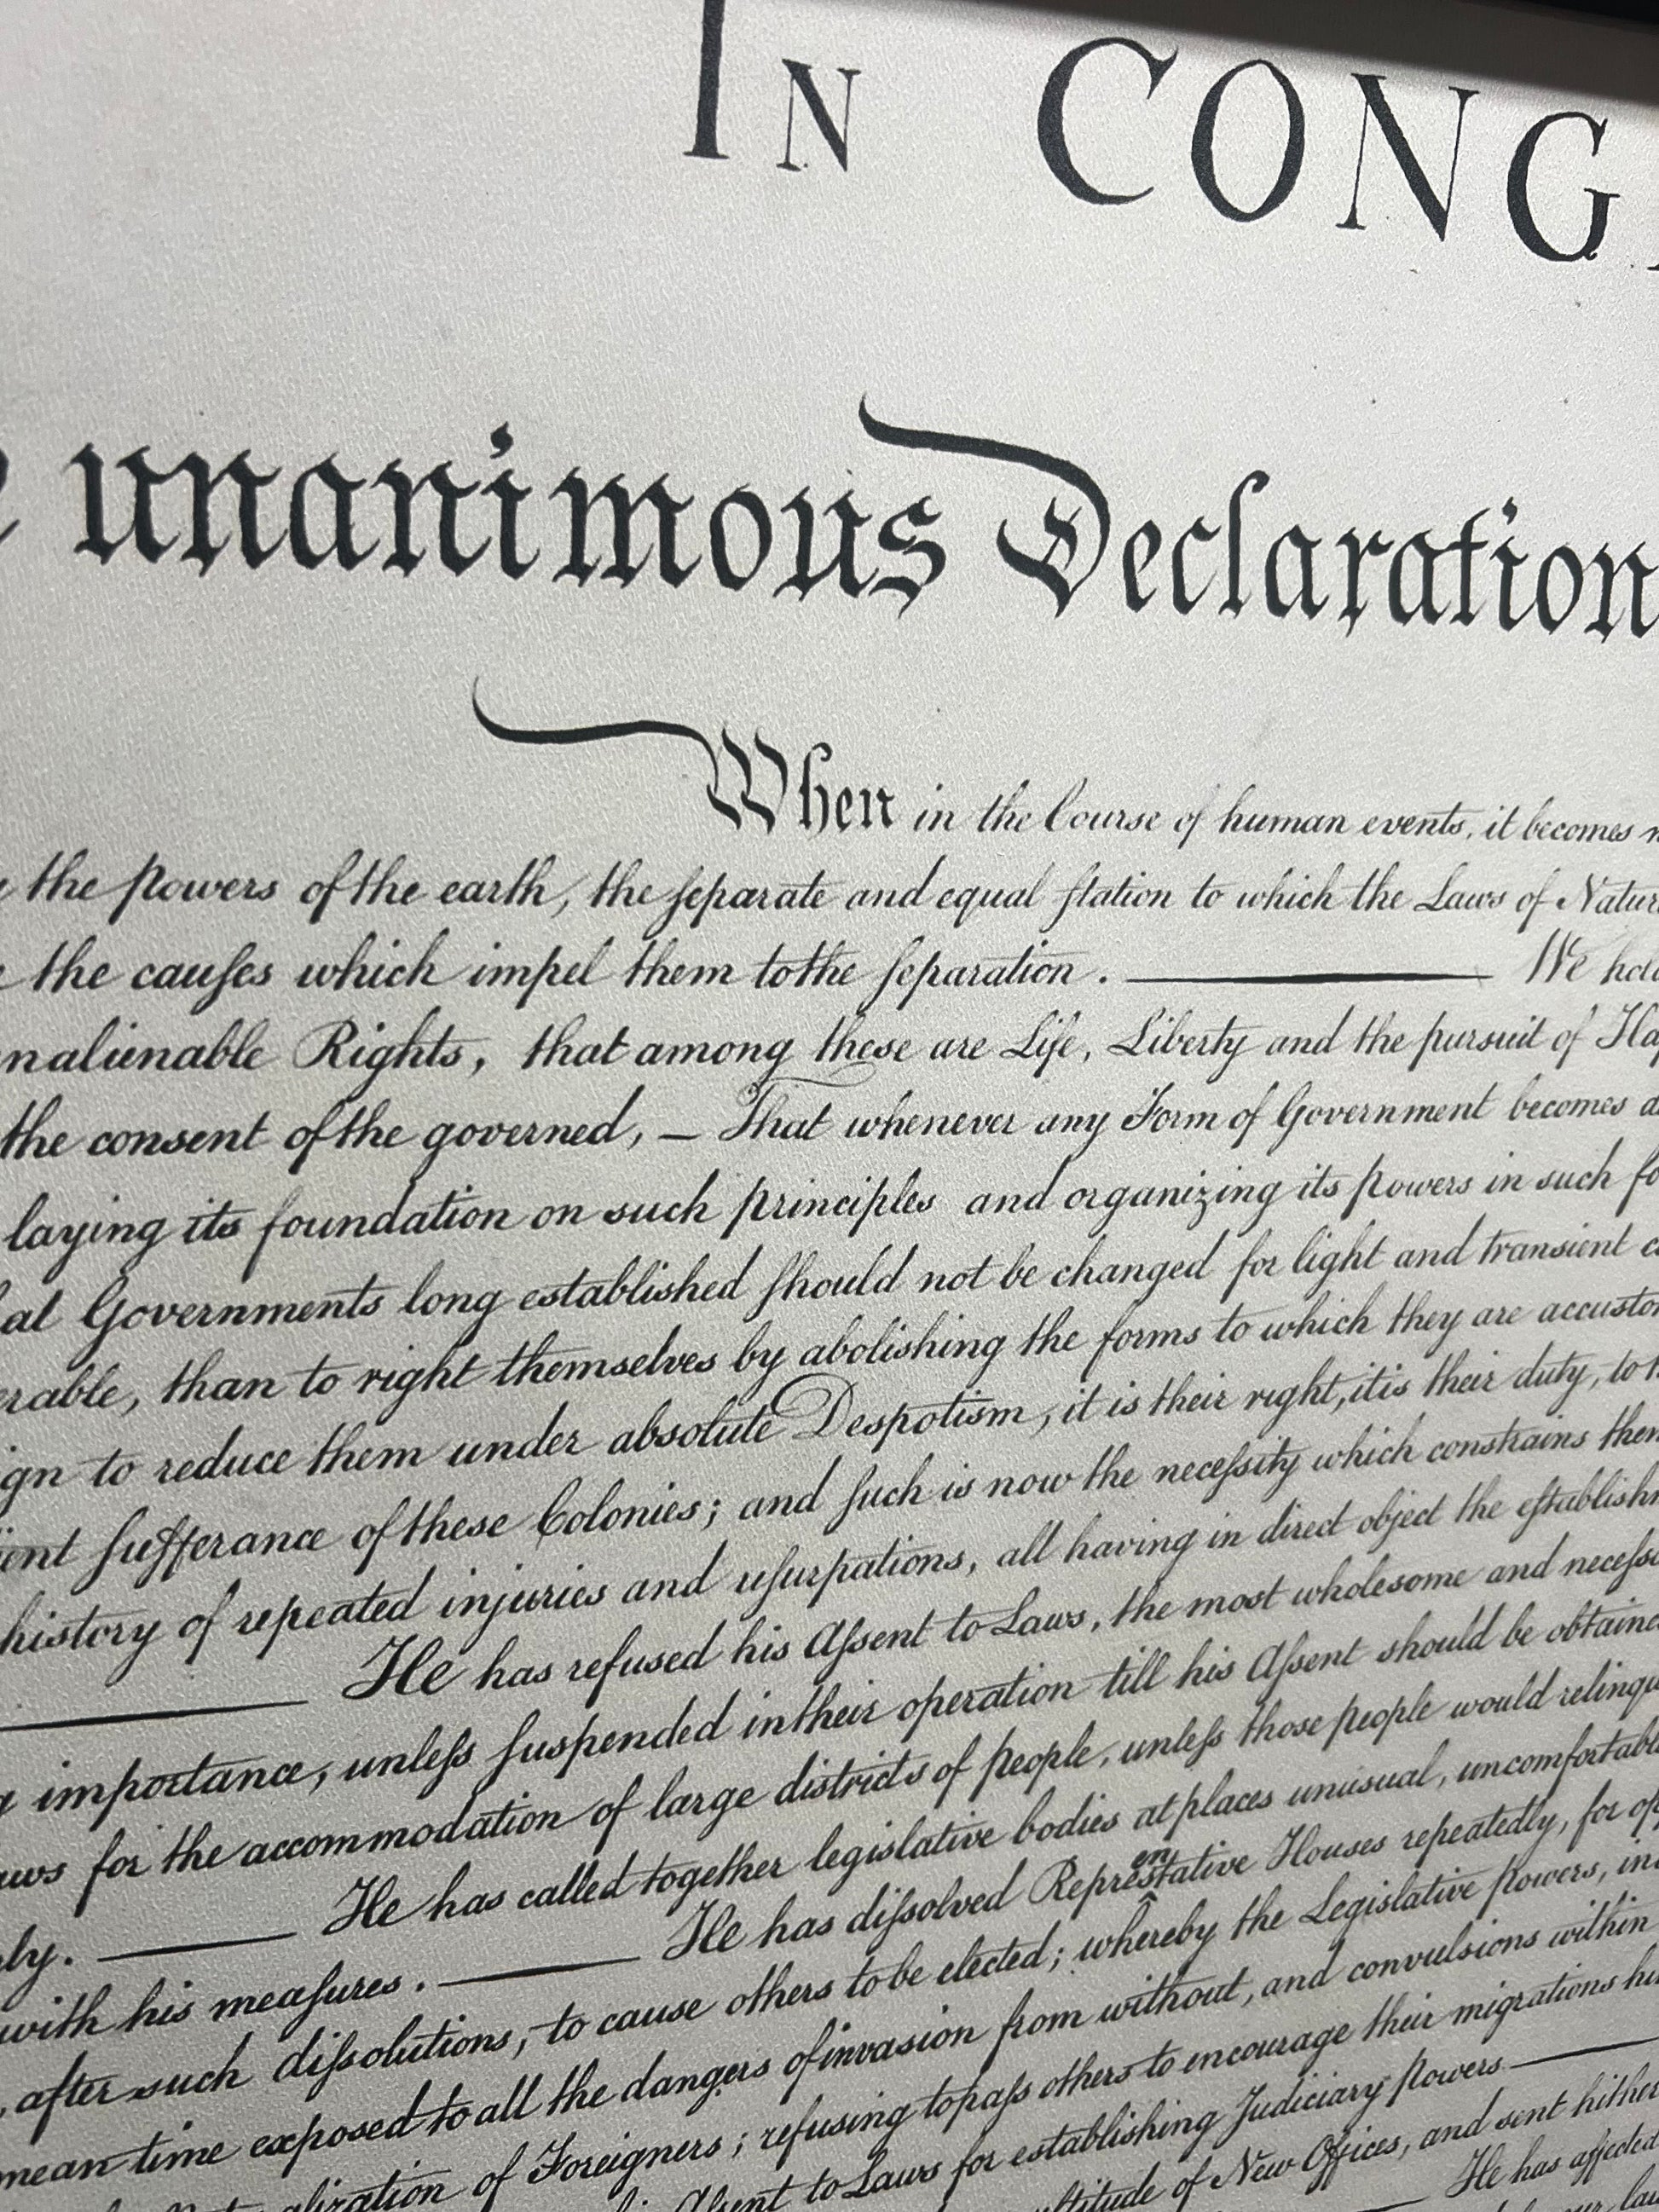 IN CONG
unanimous Declaration
When in the Course of human events, it becomes
the powers of the earth, the ſeparate and equal ſtation to which the Laws of Natur
the cauſes which impel them to the ſeparation. ——— We hol
nalienable Rights, that among these are Life, Liberty and the pursuit of Hap
the consent of the governed, — That whenever any Form of Government becomes d
laying its foundation on such principles and organizing its powers in such fo
at Governments long established ſhould not be changed for light and transient c
erable, than to right themselves by abolishing the forms to which they are accustom
ign to reduce them under absolute Despotism, it is their right, it is their duty, to t
ient ſufferance of these Colonies; and ſuch is now the neceſsity which constrains them
history of repeated injuries and uſurpations, all having in direct object the eſtablishm
——— He has refused his Aſsent to Laws, the most wholesome and neceſsa
importance, unleſs ſuspended in their operation till his Aſsent should be obtained
aws for the accommodation of large districts of people, unleſs those people would relinqu
ly. ——— He has called together legislative bodies at places unusual, uncomfortable
with his meaſures. ——— He has diſsolved Representative Houses repeatedly, for op
, after such diſsolutions, to cause others to be elected; whereby the Legislative powers, inc
mean time exposed to all the dangers of invasion from without, and convulsions within
alization of Foreigners; refusing to paſs others to encourage their migrations hi
Aſsent to Laws for establishing Judiciary powers ———
ultitude of New Offices, and sent hither
He has affected